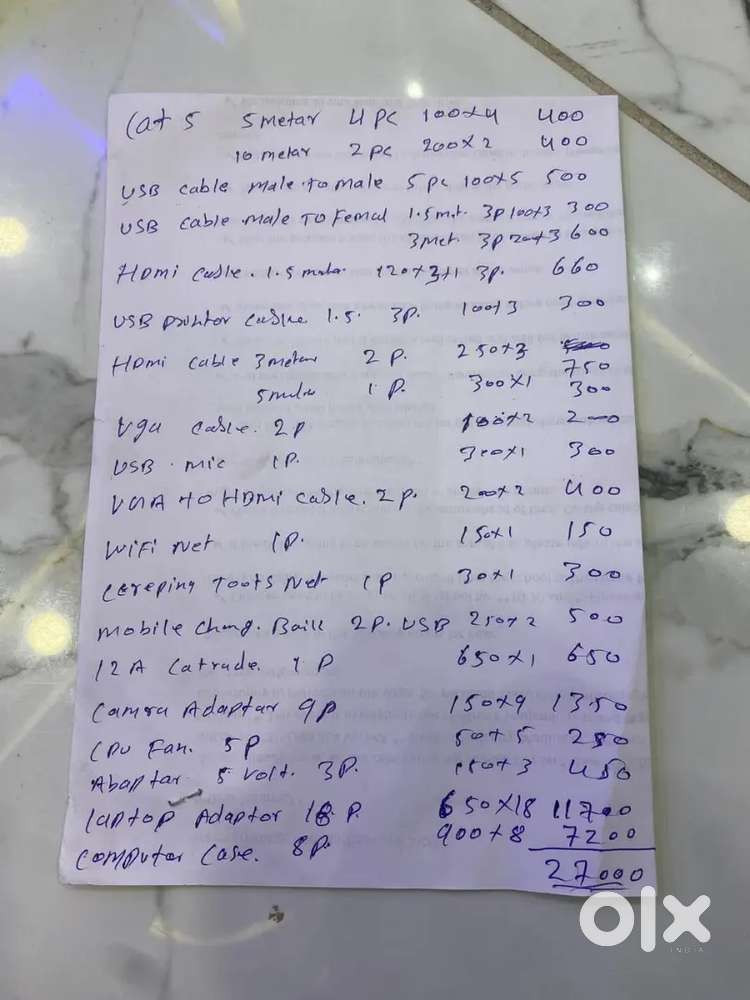 Cat 5 5 metar 4 PC 100x4 400
10 metar 2 pc 200x2 400
USB cable male to male 5 pc 100x5 500
USB cable male TO Femal 1.5 mt. 3p 100x3 300
3 met. 3p 200x3 600
HDmi cable. 1.5 metar 3p. 660
USB printor cable 1.5. 3p. 100x3 300
HDmi cable 3 metar 2 P. 250x3 750
5 metar 1 P. 300x1 300
Vga cable. 2p 100x2 200
USB. mic 1P. 300x1 300
VGA to HDmi cable. 2p. 200x2 400
WiFi Net 1p. 150x1 150
Cereping Toots Net 1P 30x1 300
mobile Charg. 2P. USB 250x2 500
12A Catrade. 1 P 650x1 650
Camra Adaptar 9p 150x9 1350
CPU Fan. 5P 50x5 250
Abaptar 5 volt. 3P. 150x3 450
laptop Adaptor 18 P. 650x18 11700
computor case. 8p. 900x8 7200
27000
olx
INDIA